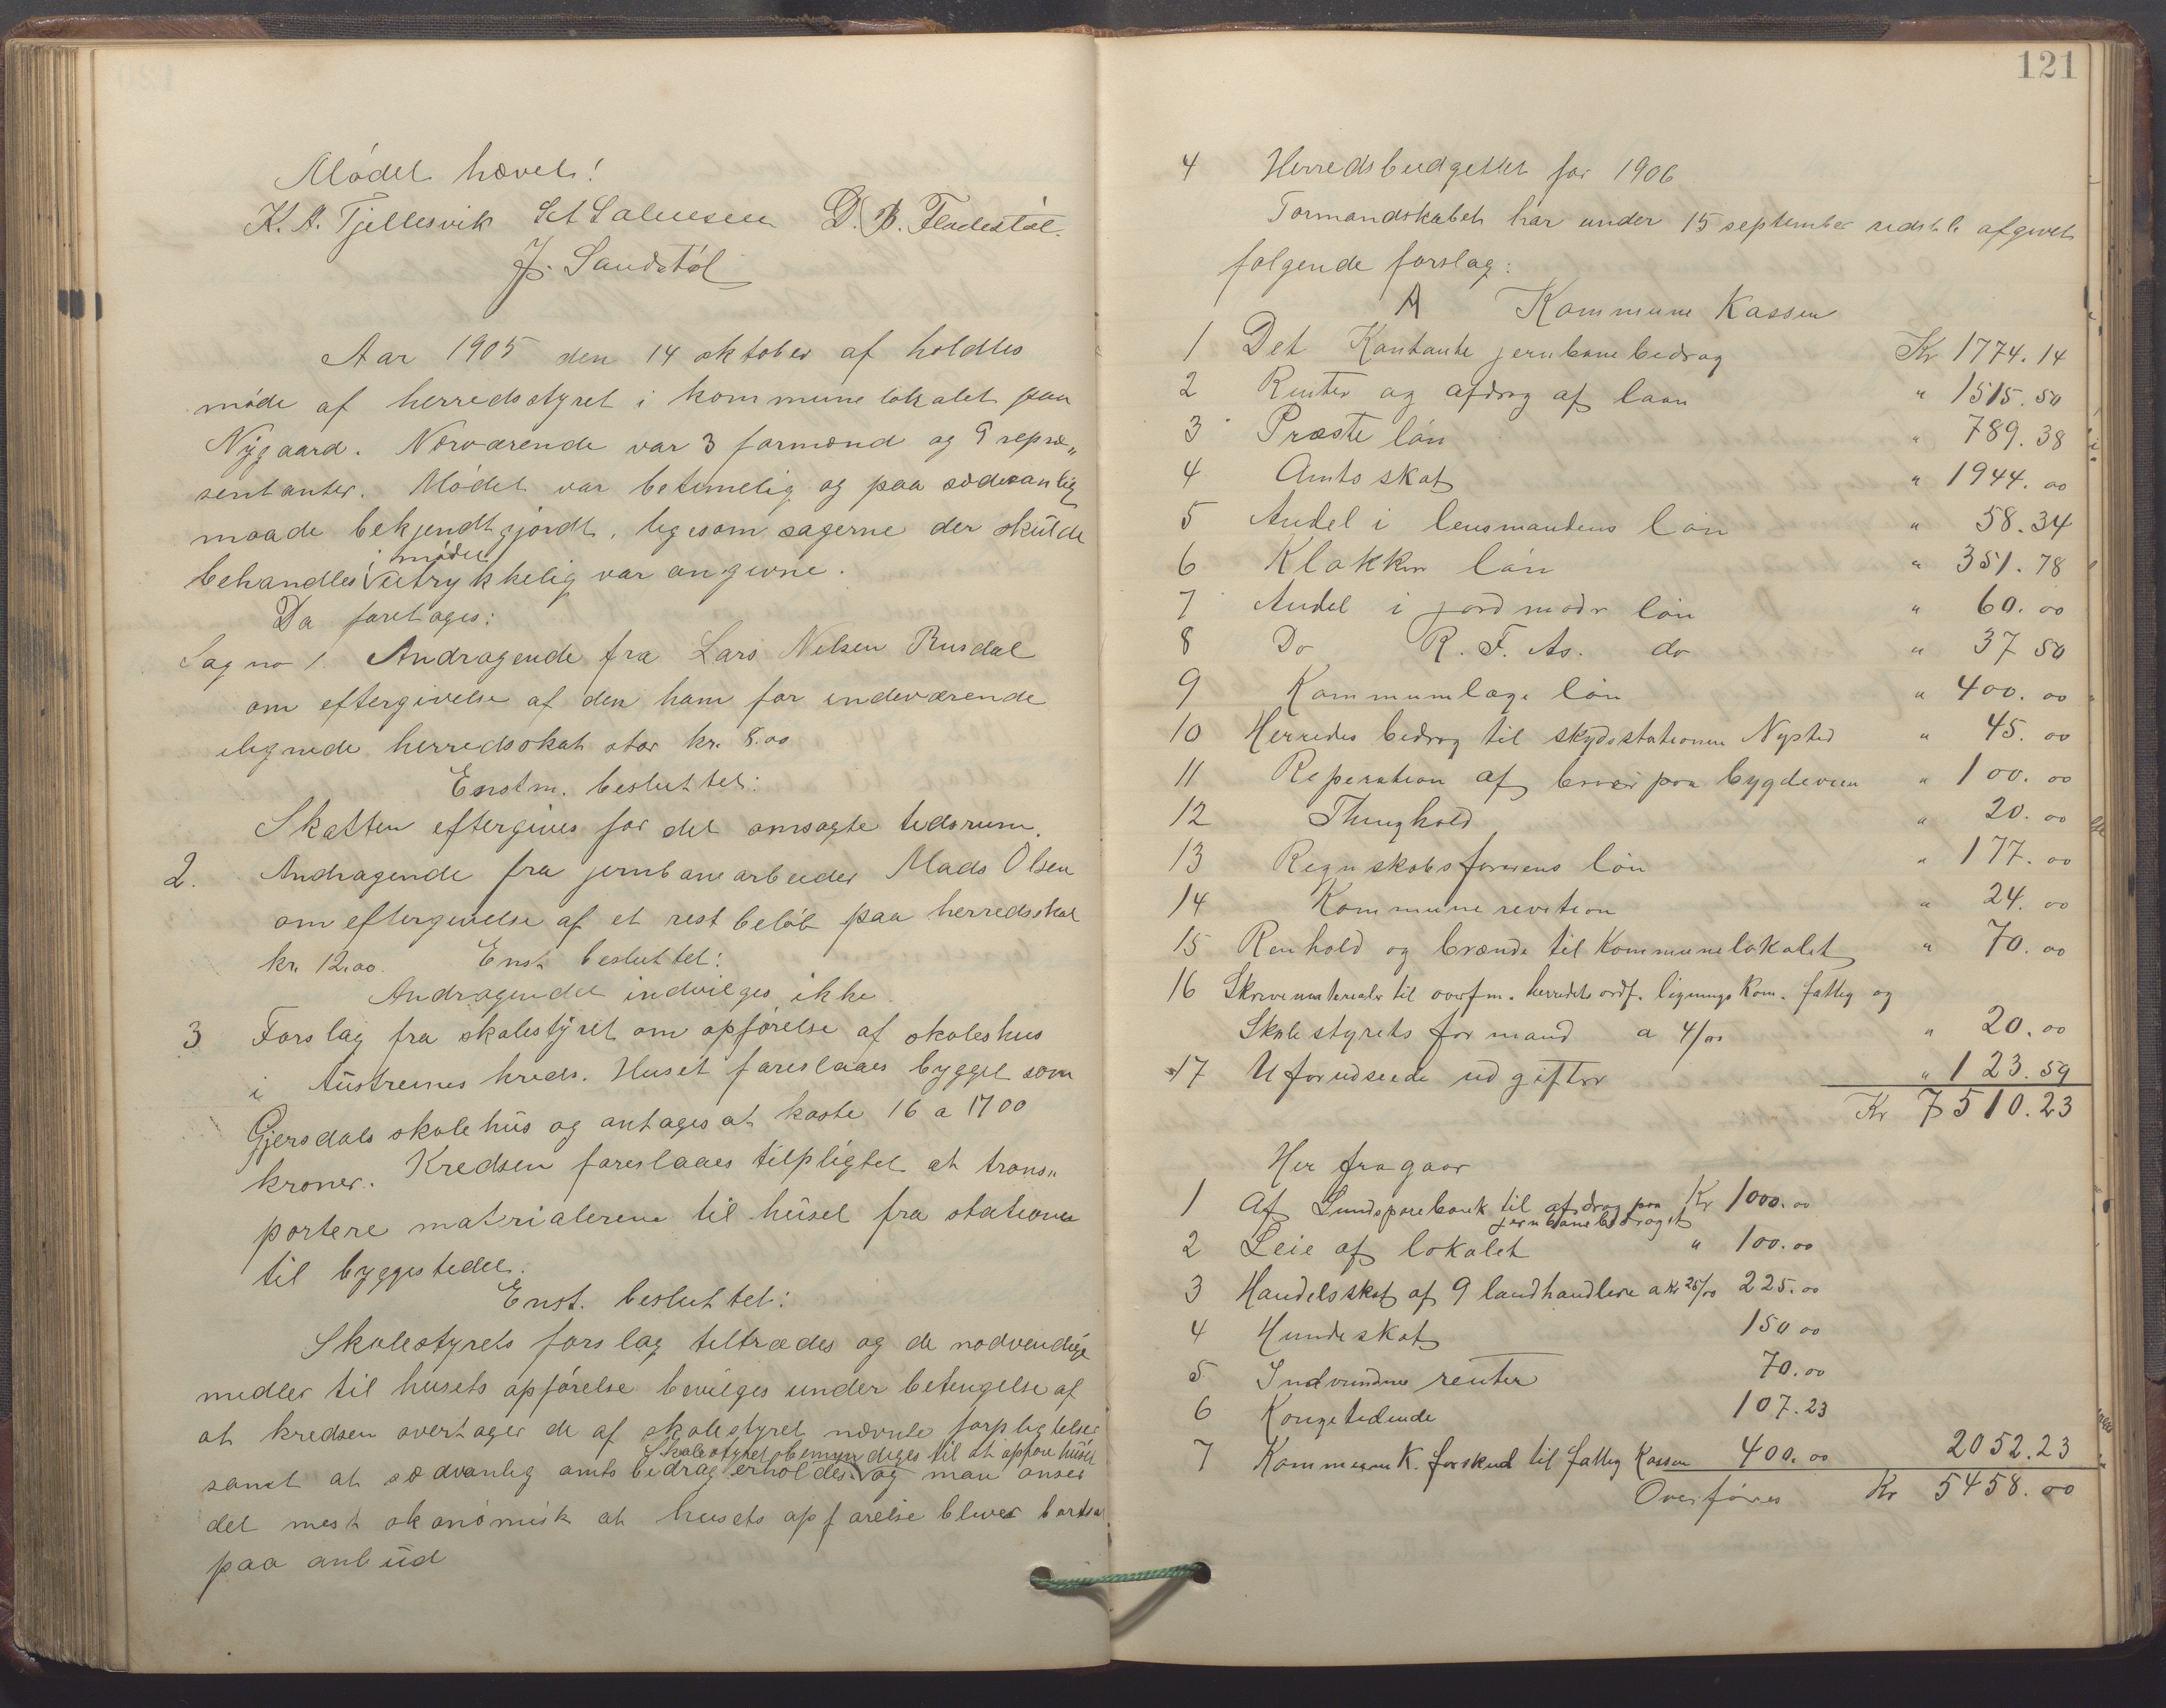 Mödet hævet!
K. A. Tjellesvik S A Salmesen D. B. Fladestöl.
J. Sandstöl
Aar 1905 den 14 oktober af holdtes
möde af herredsstyret i kommunelokalet paa
Nygaard. Nærværende var 3 formænd og 9 repræ„
sentanter. Mödet var betimelig og paa sædvanlig
maade bekjendtgjordt, ligesom sagerne der skulde
behandles i mödet udtrykkelig var angivne.
Da foretoges:
Sag no 1. Andragende fra Lars Nilsen Rusdal
om eftergivelse af den ham for indeværende
ilignede herredsskat stor kr. 8.00
Enstm. besluttet:
Skatten eftergives for det omsögte tidsrum.
2. Andragende fra jernbanearbeider Mads Olsen
om eftergivelse af et restbelöb paa herredsskat
kr. 12.00. Enst. besluttet:
Andragendet indvilges ikke.
3 Forslag fra skolestyret om opförelse af skoleshus
i Austreims kreds. Huset foreslaaes bygget som
Gjersdals skolehus og antages at koste 16 a 1700
kroner. Kredsen foreslaaes tilpligtet at trans„
portere materialerene til huset fra stationen
til byggestedet.
Enst. besluttet:
Skolestyrets forslag tiltrædes og de nödvendige
midler til husets opförelse bevilges under betingelse af
at kredsen overtager de af skolestyret nævnte forpligtelser
samt at sædvanlig amtsbidrag erholdes. Skolestyret bemyndiges til at opföre huset og man anser
det mest ökonömisk at husets opförelse bliver bortsat
paa anbud
121
4 Herredsbudgettet for 1906
Formandskabet har under 15 september sidstl. afgivet
fölgende forslag:
A Kommune Kassen
1 Det Kontante jernbanebidrag Kr 1774.14
2 Renter og afdrag af laan " 1515.50
3 Præste lön " 789.38
4 Amtsskat " 1944.00
5 Andel i lensmandens lön " 58.34
6 Klokker lön " 351.78
7 Andel i jordmodr lön " 60.00
8 Do R. F. As. do " 37 50
9 Kommunelæge lön " 400.00
10 Herredes bidrag til skydsstationen Nysted " 45.00
11 Reperation af broer paa bygdeveien " 100.00
12 Thinghold " 20.00
13 Regnskabsförerens lön " 177.00
14 Kommune revition " 24.00
15 Renhold og brænde til Kommunelokalet " 70.00
16 Skrivematerialer til overfm. herredets ordf. lignings Kom. fattig og
Skolestyrets formand a 4/00 " 20.00
17 Uforudseede udgifter " 123.59
Kr 7510.23
Her fragaar
1 Af Lundsparebank til afdrag paa jernbanebidraget Kr 1000.00
2 Leie af lokalet " 100.00
3 Handelsskat af 9 landhandlere a kr 25/00 225.00
4 Hundeskat 150 00
5 Indvundne renter 70.00
6 Kongetidende 107.23
7 Kommune K. forskud til fattig Kassen 400.00 2052.23
Overföres Kr 5458.00